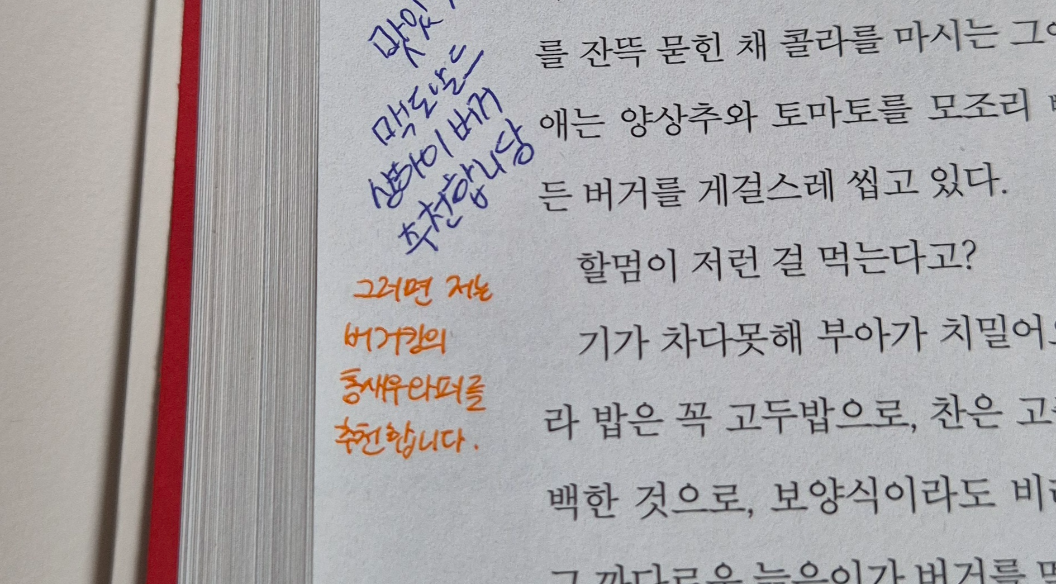 맛있
맥도날드
상하이버거
추천합니당
그러면 저는
버거킹의
통새우와퍼를
추천합니다.
를 잔뜩 묻힌 채 콜라를 마시는 그
애는 양상추와 토마토를 모조리
든 버거를 게걸스레 씹고 있다.
할멈이 저런 걸 먹는다고?
기가 차다못해 부아가 치밀어
라 밥은 꼭 고두밥으로, 찬은 고
백한 것으로, 보양식이라도 비
그 까다로운 늙은이가 버거를